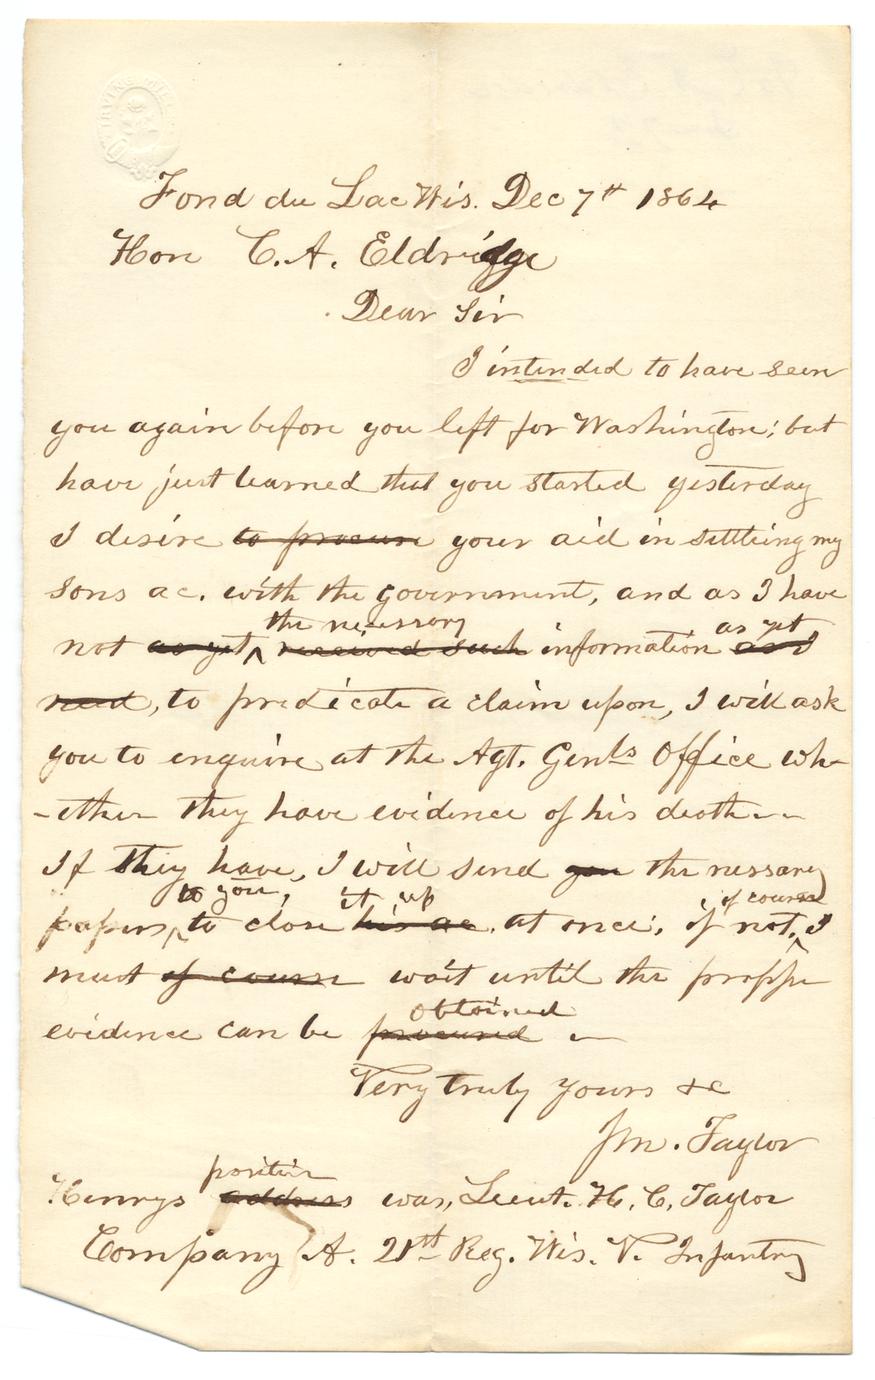 Fond du Lac Wis. Dec 7th 1864
Hon C. A. Eldridge
Dear Sir
I intended to have seen
you again before you left for Washington; but
have just learned that you started yesterday
I desire to procure your aid in settleing my
sons ac. with the government, and as I have
the necessary as yet
not as yet ^ received such information as I
need, to predicate a claim upon, I will ask
you to enquire at the Agt. Genls Office wh-
-ether they have evidence of his death--
If they have, I will send you the nessary
to you, it up if course
papers, ^ to close his ac. at once; if not, ^ I
must of course wait until the propper
obtained
evidence can be procured -
Very truly yours &c
J M. Taylor
position
Henrys address was, Lieut. H. C. Taylor
Company A. 21st Reg. Wis. V. Infantry